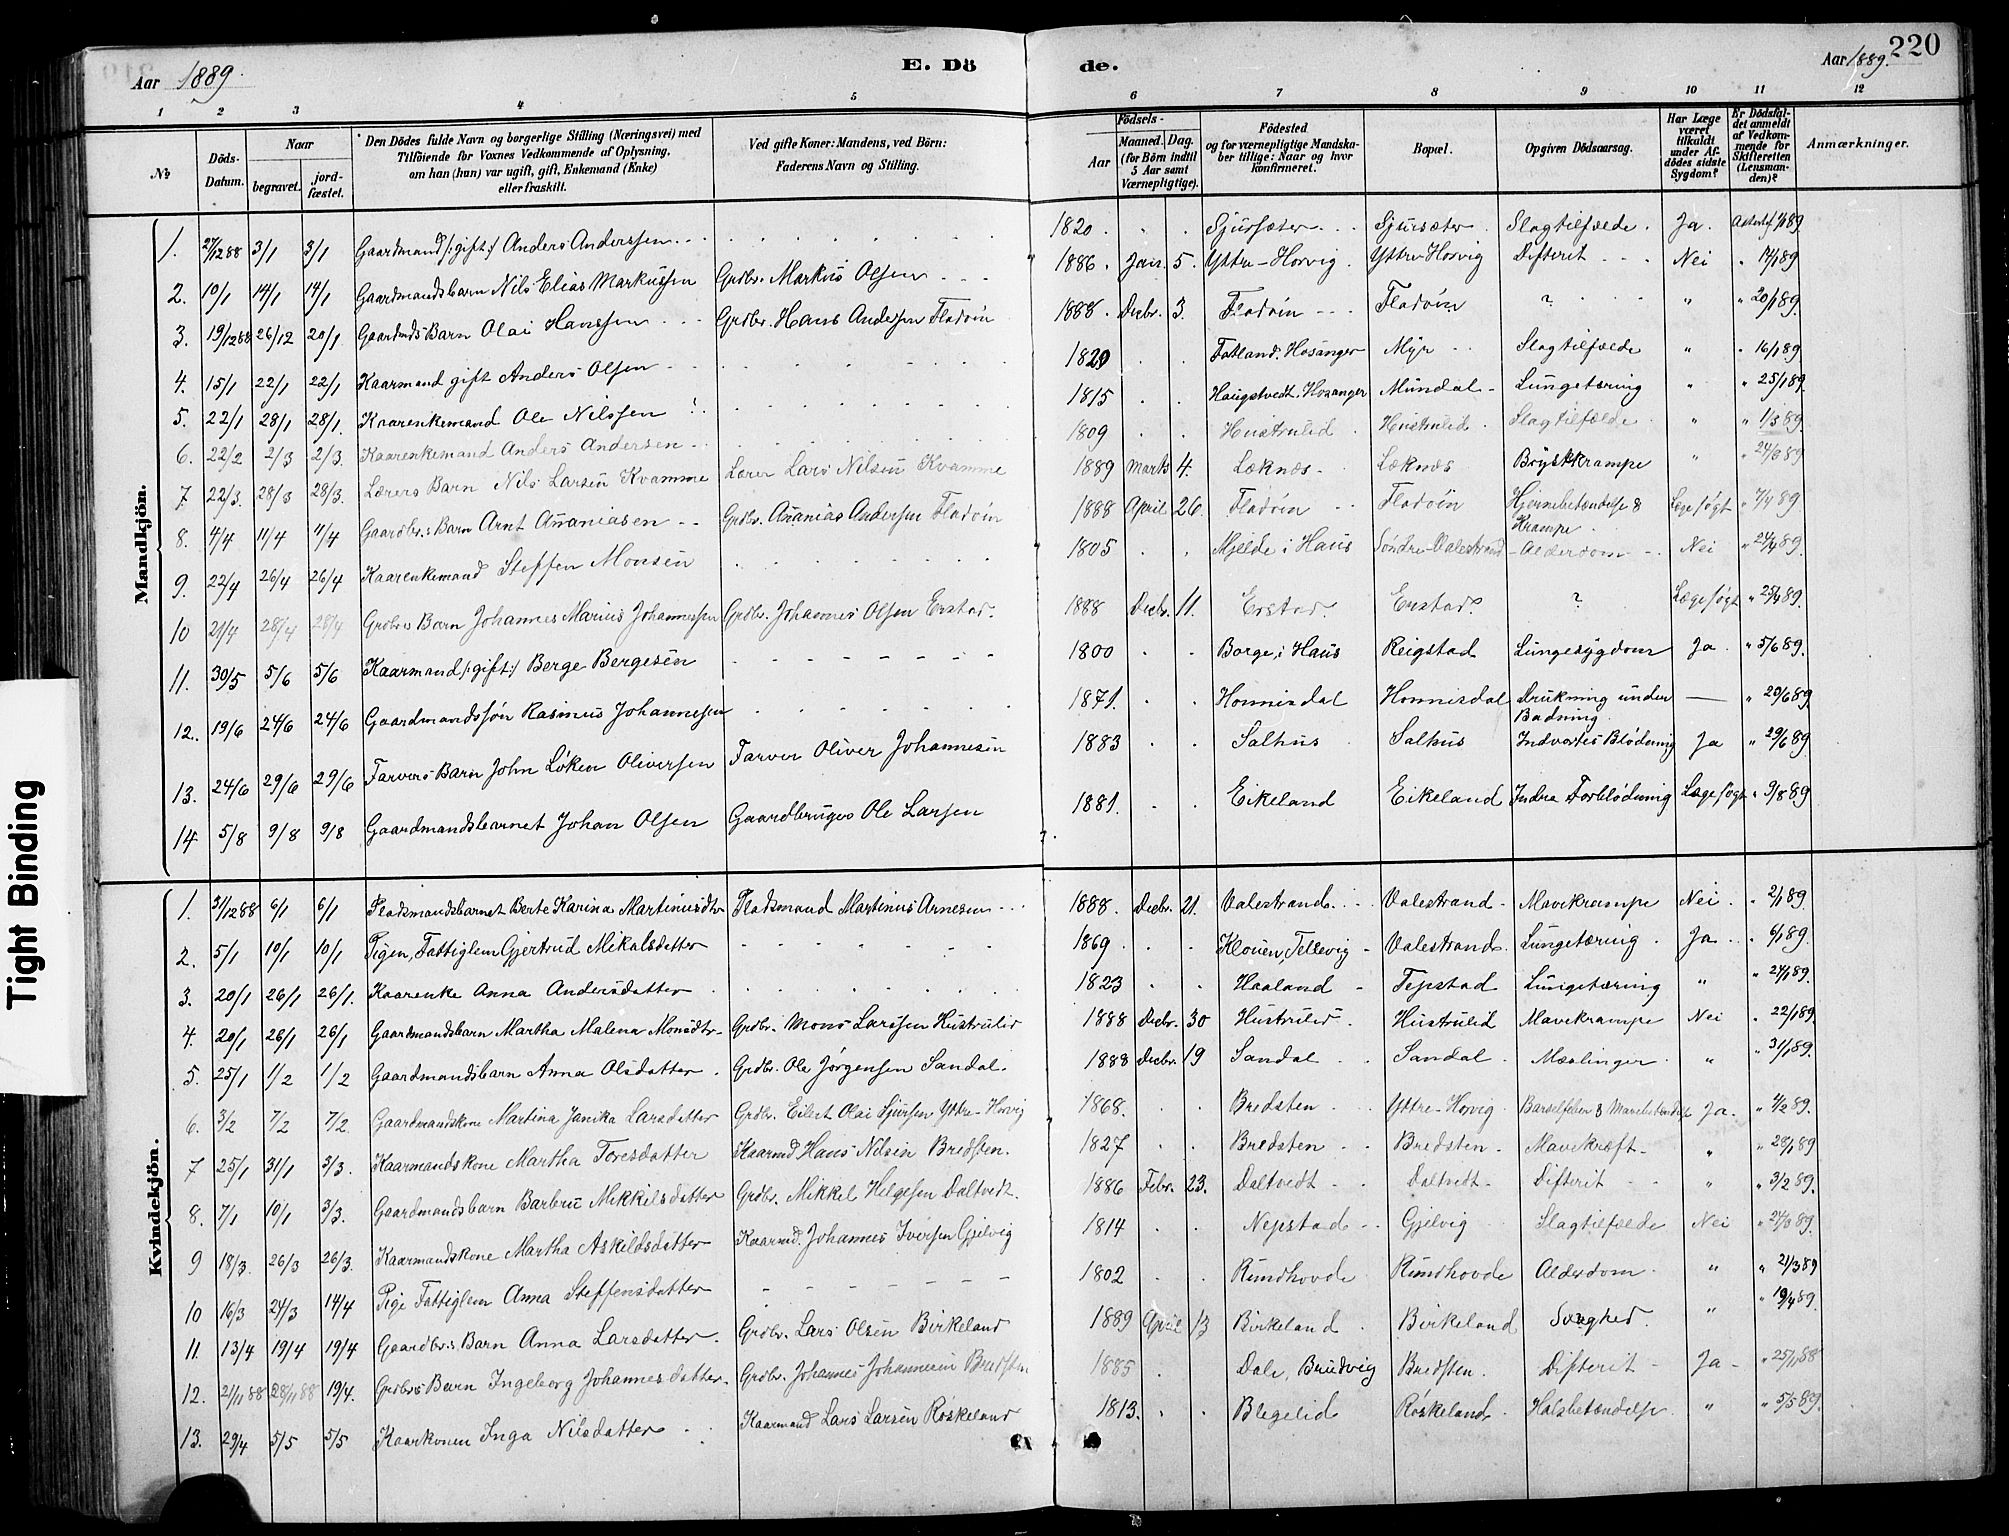 220
Aar 1889. E. Dö de. Aar 1889.
1 2 3 4 5 6 7 8 9 10 11 12
№ Döds-Datum. Naar begravet. jord-fæstet. Den Dödes fulde Navn og borgerlige Stilling (Næringsvei) med Tilföiende for Voxnes Vedkommende af Oplysning. om han (hun) var ugift, gift, Enkemand (Enke) eller fraskilt. Ved gifte Koner: Mandens, ved Börn: Faderens Navn og Stilling. Födsels- Aar Maaned. Dag. (for Börn indtil 5 Aar samt Værnepligtige). Födested og for værnepligtige Mandska-ber tillige: Naar og hvor konfirmeret. Bopæl. Opgiven Dödsaarsag. Har Læge været tilkaldt under Af-dödes sidste Sygdom? Er Dödsfal-det anmeldt af Vedkom-mende for Skifteretten (Lensman-den)? Anmærkninger.
Mandkjön.
1. 27/12 88 3/1 3/1 Gaardmand /:gift:/ Anders Anderssen 1820 Sjursæter Sjursæter Slagtilfælde Ja. 1/1 89
2. 10/1 14/1 14/1 Gaardmandsbarn Nils Elias Markussen Grdbr. Markus Olsen 1886. Jan. 5. Yttre-Horvig Yttre Horvig Difterit Nei " 14/1 89
3. 19/12 88 26/12 20/1 Gaardmds Barn Olai Hanssen Grdbr. Hans Andersen Fladøin 1888. Decbr. 3. Fladøin Fladøin ? " " 20/1 89.
4. 15/1 22/1 22/1 Kaarmand gift Anders Olsen 1820 Fotland. Hosanger Myr Slagtilfælde " " 16/1 89
5. 22/1 28/1 28/1. Kaarenkemand Ole Nilssen 1815 Haugstvedt. Hosanger Mundal Lungetæring " " 25/1 89
6. 22/2 2/3 2/3. Kaarenkemand Anders Andersen 1809 Hustrulid Hustrulid Slagtilfælde " " 1/3 89
7 22/3. 28/3 28/3. Lærers Barn Nils Larsen Kvamme Lærer Lars Nilsen Kvamme 1889 Marts 4. Læknæs Læknæs Brystkrampe " " 24/3 89
8. 4/4 11/4 11/4 Gaardbr.s Barn Arnt Ananiasen Grdbr. Ananias Andersen Fladøin 1888 April 26. Fladøin Fladøin Hjernebetændelse & Krampe Læge søgt " 7/4 89
9. 22/4 26/4 26/4 Kaarenkemand Steffen Monsen 1805 Mjelde i Haus Søndre-Valestrand Alderdom Nei " 24/4 89
10 21/4 28/4 28/4 Grdbrs Barn Johannes Marius Johannessen Grdbr. Johannes Olsen Erstad. 1888 Decbr. 11. Erstad. Erstad. ? Læge søgt " 25/4 89.
11. 30/5 5/6 5/6 Kaarmand /:gift:/ Berge Bergesen 1800 Borge, i Haus Reigstad Lungesygdom Ja " 5/6 89.
12. 19/6 24/6 24/6 Gaardmandssøn Rasmus Johannessen 1871. Honnisdal Honnisdal Drukning under Badning. — " 20/6 89.
13. 24/6 29/6 29/6 Farvers Barn John Løken Oliversen Farver Oliver Johannesen 1883 Salhus Salhus Indvortes Blødning Ja " 29/6 89.
14 5/8 9/8 9/8 Gaardmandsbarnet Johan Olsen Gaardbruger Ole Larsen 1881. Eikeland Eikeland Indre Forblødning Læge søgt " 9/8 89
Kvindekjön.
1. 31/12 88 6/1 6/1 Pladsmandsbarnet Berte Karina Martinusdtr Pladsmand Martinus Arnesen 1888. Decbr. 21. Valestrand. Valestrand Mavekrampe Nei " 2/1 89.
2. 5/1 10/1 10/1 Pigen, Fattiglem Gjertrud Mikalsdatter 1869 Klouen, Tellevig Valestrand. Lungetæring. Ja " 6/1 89.
3. 20/1 26/1 26/1. Kaarenke Anna Andersdatter 1823 Haaland Tepstad Lungetæring " " 27/1 89.
4. 20/1 26/1 26/1. Gaardmandsbarn Martha Malena Monsdtr. Grdbr. Mons Larssen Hustrulid 1888 Decbr. 30 Hustrulid. Hustrulid Mavekrampe Nei " 22/1 89.
5. 25/1 1/2 1/2 Gaardmandsbarn Anna Olsdatter Grdbr. Ole Jørgensen Sandal. 1888 Decbr. 19 Sandal Sandal Mæslinger " " 31/1 89.
6. 3/2 7/2 7/2. Gaardmandskone Martina Janika Larsdatter Grdbr. Eilert Olai Sjursen Yttre-Horvig 1868. Bredsten Yttre-Horvig Barselfeber & Mavebetændelse Ja " 4/2 89.
7 25/1 31/1 3/3. Kaarmandskone Martha Toresdatter Kaarmd Hans Nilsen Bredsten. 1827 Bredsten Bredsten Mavekræft " " 28/1 89
8. 7/1 10/1 3/3. Gaardmandsbarn Barbru Mikkelsdatter Grdbr. Mikkel Helgesen Daltvedt. 1886 Febr. 23. Daltvedt Daltvedt Difterit " " 3/2 89.
9 18/3. 26/3 26/3. Kaarmandskone Martha Askildsdatter Kaarmd. Johannes Iversen Gjelvig 1814 Nepstad Gjelvig Slagtilfælde Nei " 21/3 89.
10 16/3 24/3 14/4 Pige Fattiglem Anna Steffensdatter 1802 Rundhovde Rundhovde Alderdom " " 21/3 89
11. 13/4 19/4 19/4 Gaardbr.s Barn Anna Larsdatter Grdbr. Lars Olsen Birkeland 1889 April 13 Birkeland Birkeland Svaghed. " " 19/4 89.
12. 21/11 88 28/11 88 19/4. Grdbrs Barn Ingeborg Johannesdatter Grdbr. Johannes Johannesen Bredsten 1885 Dale, Brudvig Bredsten. Difterit Ja " 25/11 88
13. 29/4 5/5 5/5 Kaarkonen Inga Nilsdatter Kaarmand Lars Larsen Røskeland 1813. Blegelid Røskeland Halsbetændelse " " 5/5 89.
Tight Binding